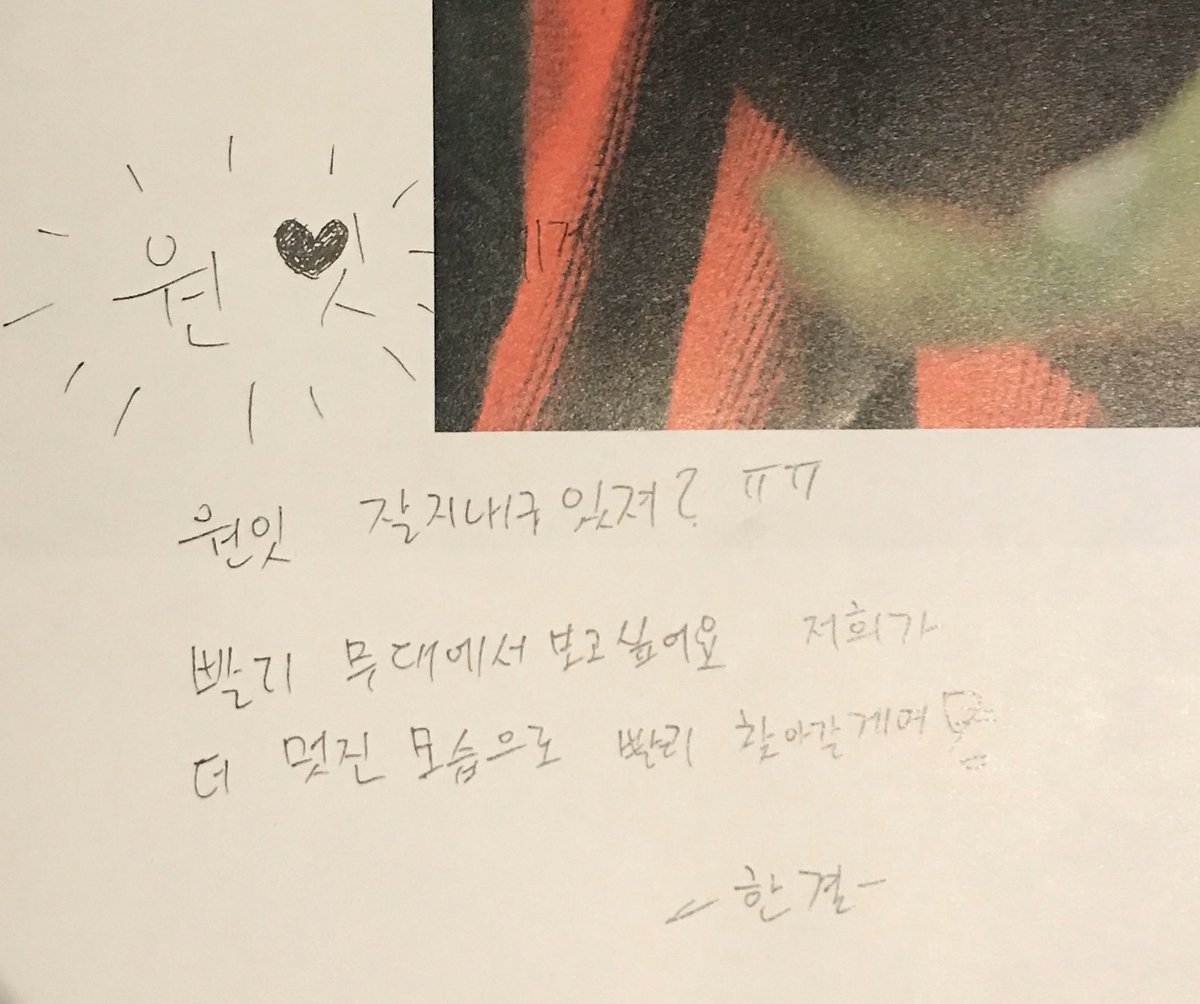 원잇
원잇 잘지내구있져? ㅠㅠ
빨리 무대에서 보고싶어요 저희가
더 멋진 모습으로 빨리 찾아갈게여
- 한결 -